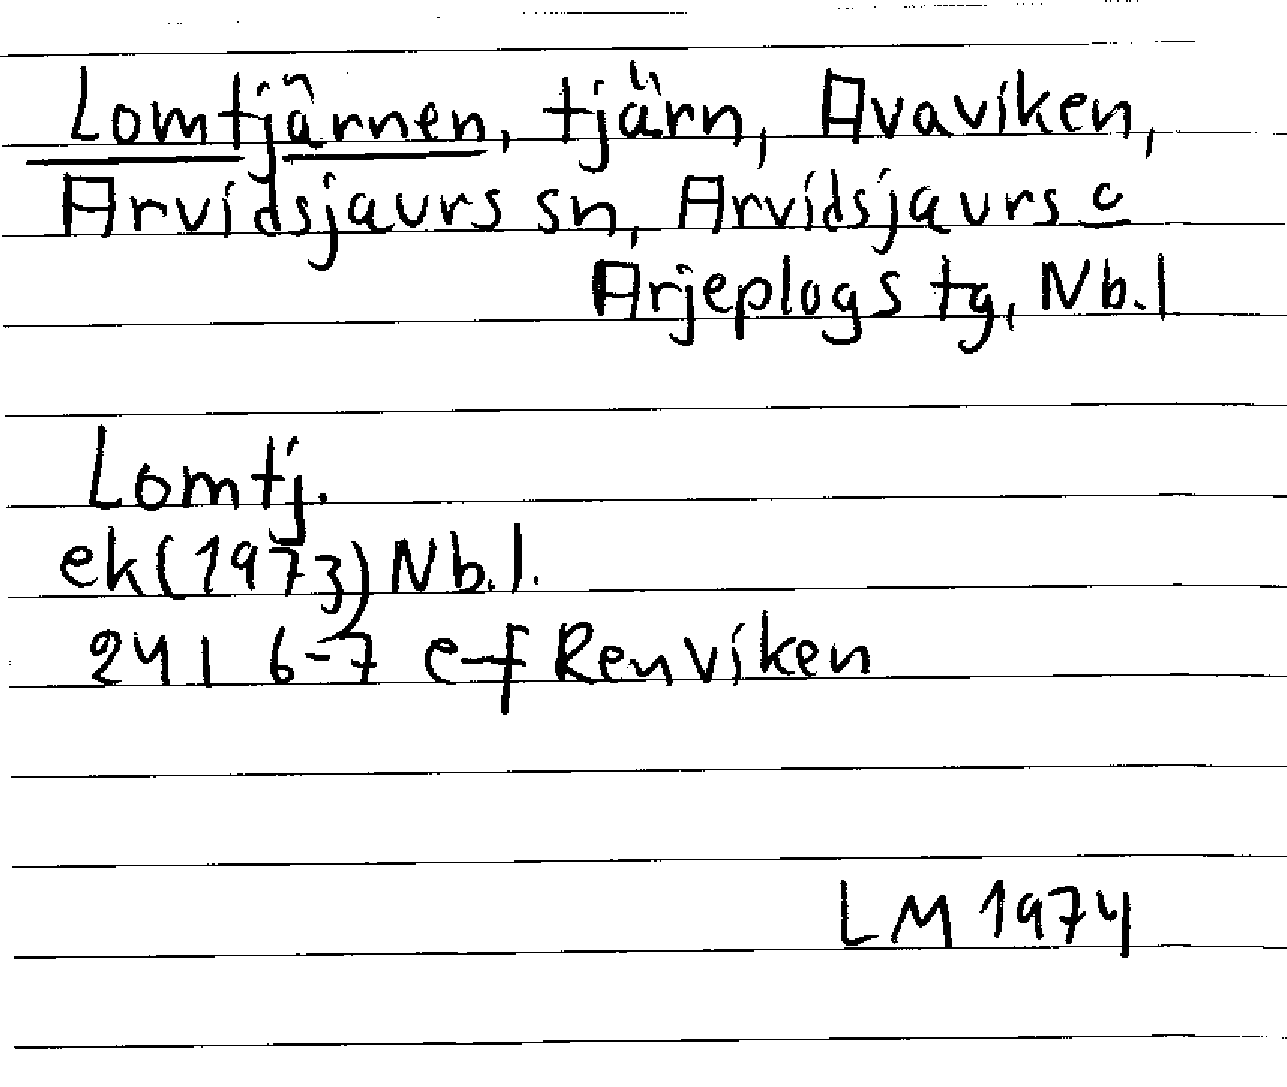 Lomtjärnen, tjärn, Avaviken,
Arvidsjaurs sn, Arvidsjaurs o
Arjeplogs tg, Nb.l
Lomtj.
ek (1973) Nb.l.
24 I 6-7 e-f Renviken
LM 1974